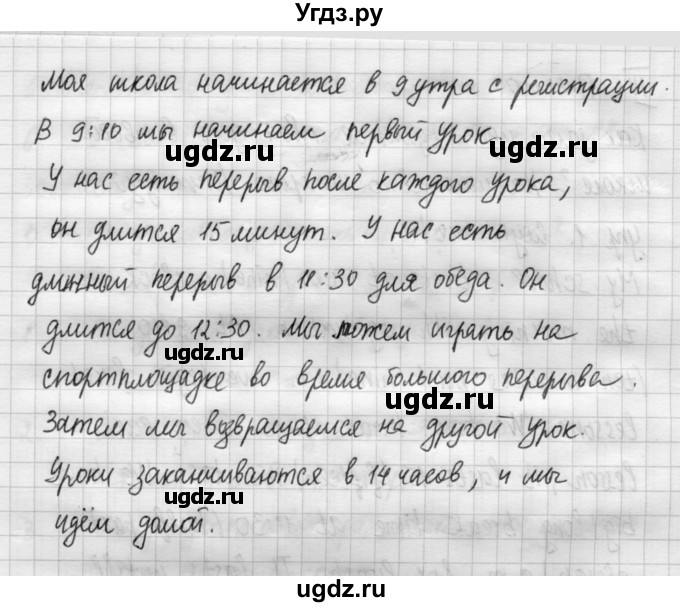 Угдз.ру
Моя школа начинается в 9 утра с регистрации.
В 9:10 мы начинаем первый урок
ugdz.ru ugdz.ru
У нас есть перерыв после каждого урока,
он длится 15 минут. У нас есть
длинный перерыв в 11:30 для обеда. Он
ugdz.ru
длится до 12:30. Мы можем играть на
ugdz.ru
спортплощадке во время большого перерыва.
ugdz.ru
Затем мы возвращаемся на другой урок.
Уроки заканчиваются в 14 часов, и мы
ugdz.ru
идём домой.
ugdz.ru